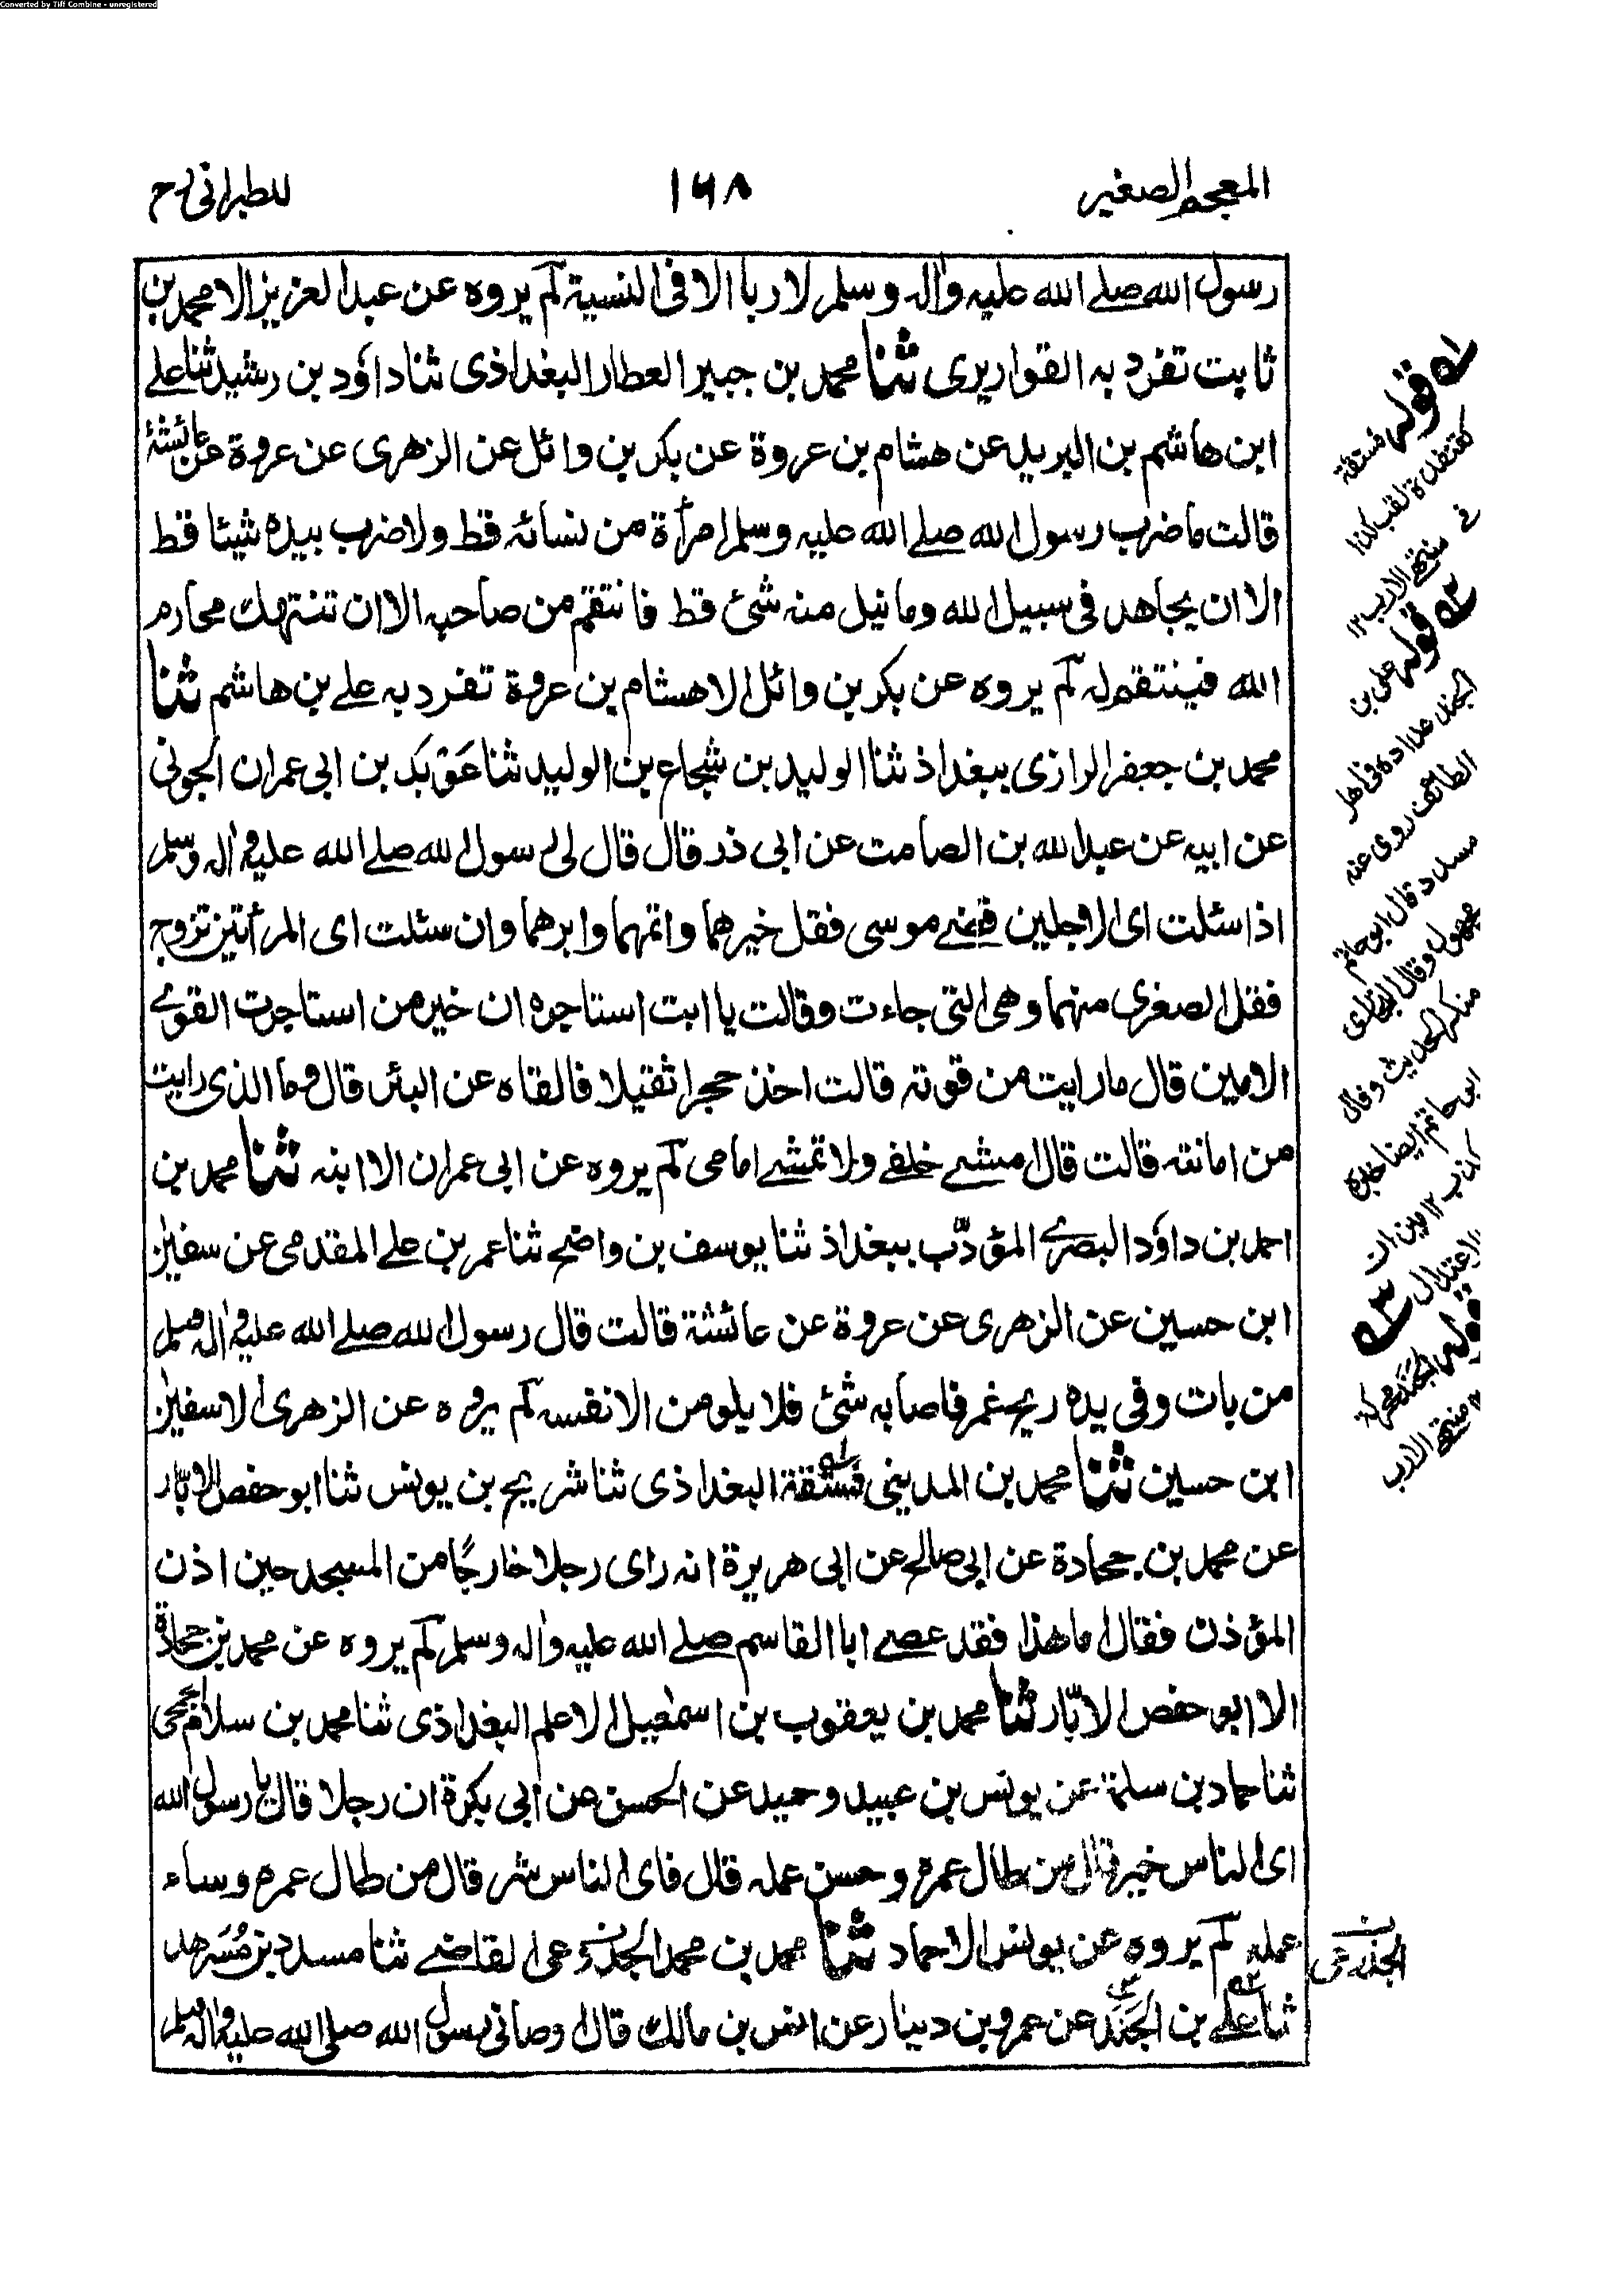 Converted by Tiff Combine - unregistered
المعجم الصغير
١٦٨
للطبرانی رح
رسول الله صلے الله علیه واٰله وسلم لا ربا الا فی النسیة لم یروه عن عبد العزیز الا محمد بن
ثابت تفرد به القواریری ثنا محمد بن جبیر العطار البغداذی ثنا داؤد بن رشید ثنا علے
ابن هاشم بن البرید عن هشام بن عروة عن بکر بن وائل عن الزهری عن عروة عن عائشة
قالت ما ضرب رسول الله صلے الله علیه وسلم امرأة من نسائه قط ولا ضرب بیده شیئا قط
الا ان یجاهد فی سبیل الله وما نیل منه شئ قط فانتقم من صاحبه الا ان تنتهك محارم
الله فینتقم له لم یروه عن بکر بن وائل الا هشام بن عروة تفرد به علے بن هاشم ثنا
محمد بن جعفر الرازی ببغداذ ثنا الولید بن شجاع بن الولید ثنا عَوْبَد بن ابی عمران الجونی
عن ابیه عن عبد الله بن الصامت عن ابی ذر قال قال لی رسول الله صلے الله علیه واٰله وسلم
اذا سئلت ای الاجلین قضے موسی فقل خیرهما واتمهما وابرهما وان سئلت ای المرأتین تزوج
فقل الصغری منهما وهی التی جاءت وقالت یا ابت استاجره ان خیر من استاجرت القوے
الامین قال ما رایت من قوته قالت اخذ حجرا ثقیلا فالقاه عن البئر قال وما الذی رایت
من امانته قالت قال امشے خلفے ولا تمشے امامی لم یروه عن ابی عمران الا ابنه ثنا محمد بن
احمد بن داؤد البصرے المؤدّب ببغداذ ثنا یوسف بن واضح ثنا عمر بن علے المقدمی عن سفیٰن
ابن حسین عن الزهری عن عروة عن عائشة قالت قال رسول الله صلے الله علیه واٰله وسلم
من بات وفی یده ریح غمر فاصابه شئ فلا یلومن الا نفسه لم یروه عن الزهری الا سفیٰن
ابن حسین ثنا محمد بن المدینی فستقة البغداذی ثنا شریح بن یونس ثنا ابو حفص الابّار
عن محمد بن جحادة عن ابی صالح عن ابی هریرة انه رای رجلا خارجًا من المسجد حین اذن
المؤذن فقال اما هذا فقد عصے ابا القاسم صلے الله علیه واٰله وسلم لم یروه عن محمد بن جحادة
الا ابو حفص الابّار ثنا محمد بن یعقوب بن اسمٰعیل الاعلم البغداذی ثنا محمد بن سلام الجمحی
ثنا حماد بن سلمة عن یونس بن عبید وحمید عن الحسن عن ابی بکرة ان رجلا قال یا رسول الله
ای الناس خیر قال من طال عمره وحسن عمله قال فای الناس شر قال من طال عمره وساء
عمله لم یروه عن یونس الا حماد ثنا محمد بن محمد الجذوعی القاضے ثنا مسدد بن مُسَرهد
ثنا علے بن الجَنَد عن عمرو بن دینار عن انس بن مالك قال اوصانی رسول الله صلی الله علیه واٰله وسلم
له قوله فستقة
کقنفذة لقب کذا
فے منتهی الارب ١٢
قوله علی بن
الجند عداده فی اهل
الطائف روی عنه
مسدد قال ابو حاتم
مجهول وقال البخاری
منکر الحدیث وقال
ابو حاتم ایضا خبره
کذب ١٢ میزان
الاعتدال
قوله الجَنَد محرکة
منتهی الارب